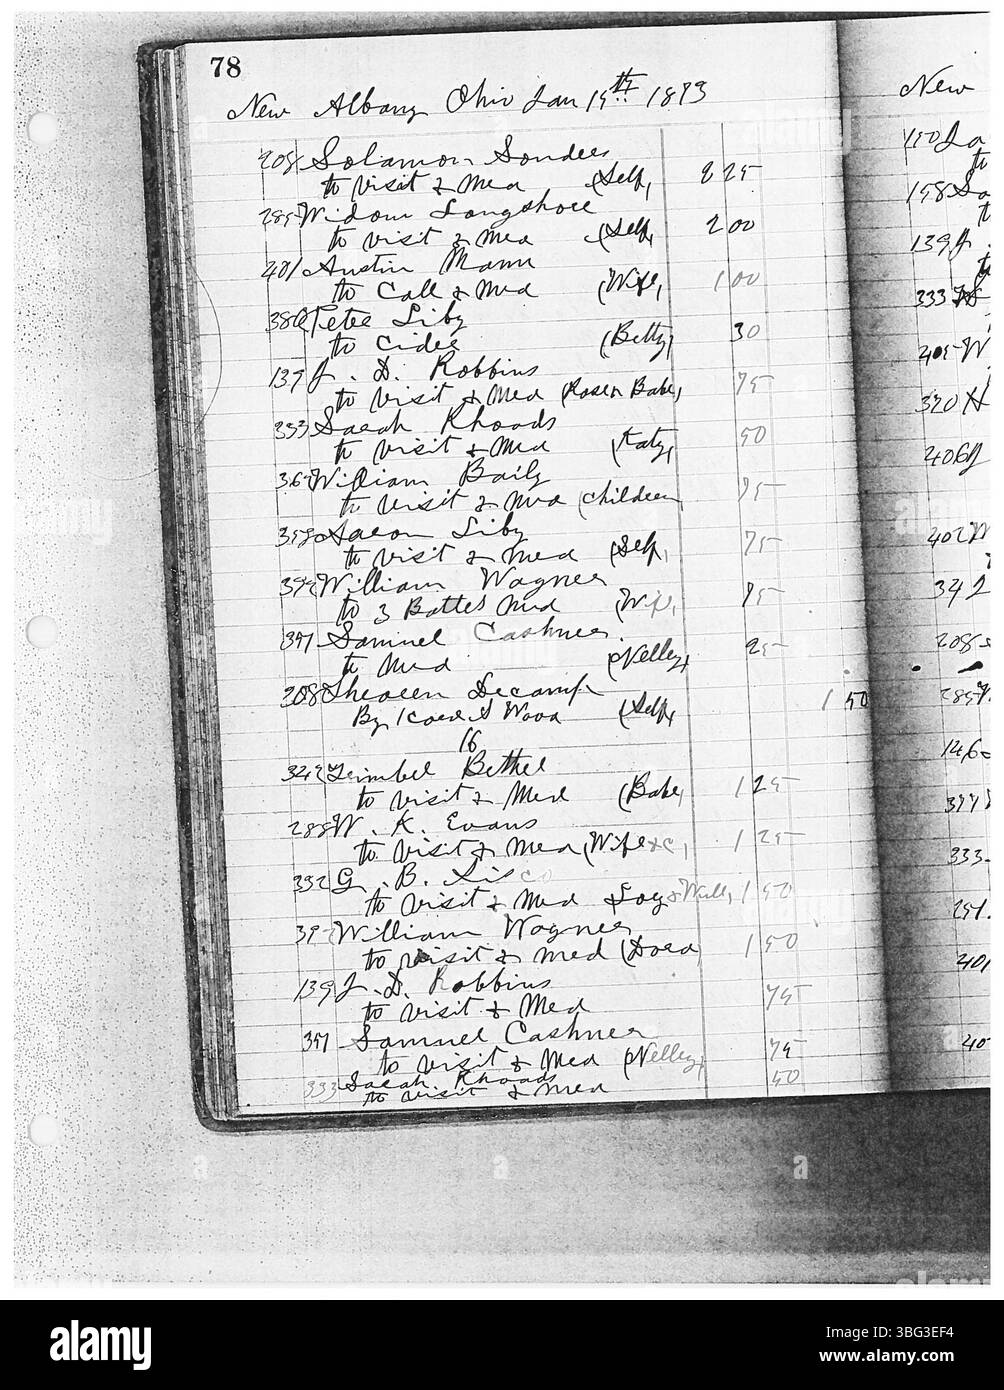 78
New Albany Ohio Jan 15th 1893
208 Solamon Sondees
to visit & Med (Self, 2 25
285 Widow Longshore
to visit & Med (Self, 2 00
401 Austin Mann
to Call & Med (Wife, 1 00
380 Petee Liby
to Cidee (Betty, 30
139 J. D. Robbins
to visit & Med ( Babe, 75
333 Sarah Rhoads
to visit & Med (Katy, 50
William Baily
to visit & Med (children 75
Aaron Liby
to visit & Med (Self, 75
William Wagner
to 3 Bottles Med (Wife, 75
397 Samuel Cashner
to Med (Nelley, 25
208 Decamp
By 1 Wood (Self, 1 50
16
Bethel
to visit & Med (Babe, 1 25
288 W. K. Evans
to visit & Med (Wife &c, 1 25
332 G. B. Sisco
to visit & Med & Will, 1 50
William Wagner
to visit & Med (Dora 1 50
139 J. D. Robbins
to visit & Med 75
397 Samuel Cashner
to visit & Med (Nelley, 75
333 Sarah Rhoads
to visit & Med 50
New
150
to
198
139 J.
333
405 W
320 H
406
402
342
208
285
146
397
333
251.
401
40
alamy
Image ID: 3BG3EF4
www.alamy.com